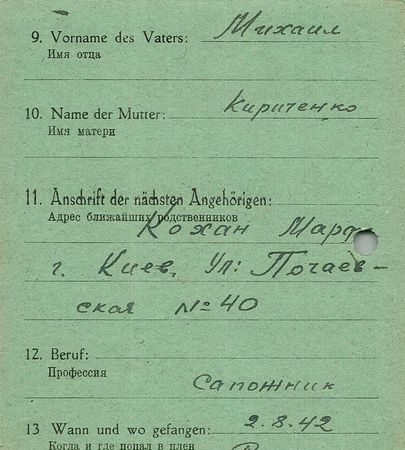 9. Vorname des Vaters: Михаил
Имя отца
10. Name der Mutter: Кириченко
Имя матери
11. Anschrift der nächsten Angehörigen:
Адрес ближайших родственников
Кохан Марф
г. Киев, Ул: Почаев-
ская № 40
12. Beruf:
Профессия
Сапожник
13 Wann und wo gefangen: 2.8.42
Когда и где попал в плен